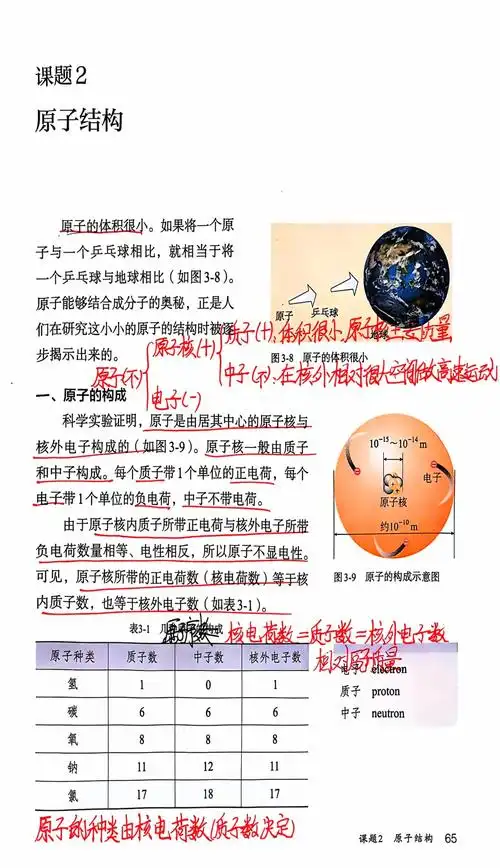 课题2
原子结构
原子的体积很小。如果将一个原
子与一个乒乓球相比，就相当于将
一个乒乓球与地球相比（如图3-8）。
原子能够结合成分子的奥秘，正是人
们在研究这小小的原子的结构时被逐
步揭示出来的。
原子
乒乓球
地球
图3-8 原子的体积很小
原子(不)
原子核(+)
质子(+)、体积很小、原子核主要质量
中子(不)、在核外相对很大空间做高速运动
电子(-)
一、原子的构成
科学实验证明，原子是由居其中心的原子核与
核外电子构成的（如图3-9）。原子核一般由质子
和中子构成。每个质子带1个单位的正电荷，每个
电子带1个单位的负电荷，中子不带电荷。
由于原子核内质子所带正电荷与核外电子所带
负电荷数量相等、电性相反，所以原子不显电性。
可见，原子核所带的正电荷数（核电荷数）等于核
内质子数，也等于核外电子数（如表3-1）。
10⁻¹⁵～10⁻¹⁴m
电子
原子核
约10⁻¹⁰m
图3-9 原子的构成示意图
表3-1
构成
核电荷数=质子数=核外电子数
原子种类 质子数 中子数 核外电子数
氢 1 0 1
碳 6 6 6
氧 8 8 8
钠 11 12 11
氯 17 18 17
电子 electron
质子 proton
中子 neutron
原子的种类由核电荷数(质子数决定)
课题2 原子结构 65